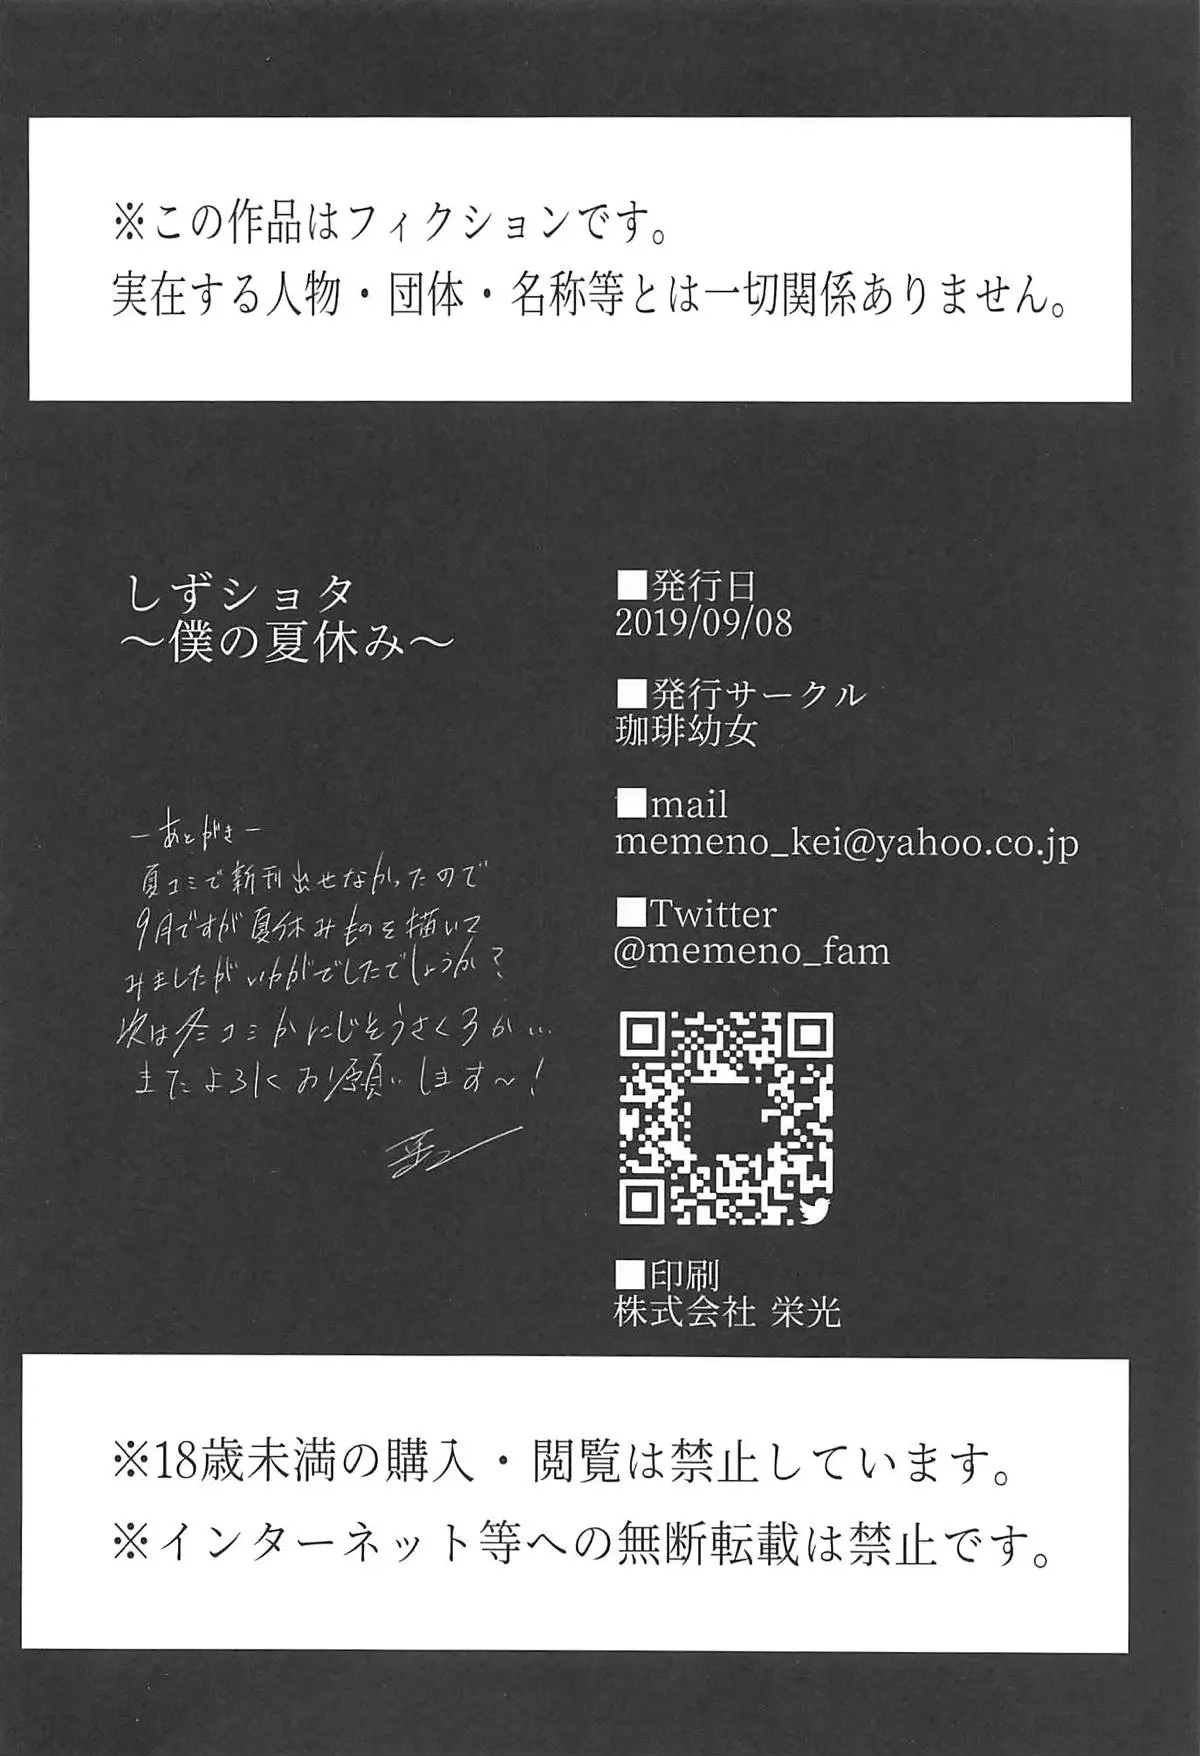 ※この作品はフィクションです。
実在する人物・団体・名称等とは一切関係ありません。
しずショタ
～僕の夏休み～
－あとがき－
夏コミで新刊出せなかったので
9月ですが夏休みものを描いて
みましたがいかがでしたでしょうか?
次は冬コミかにじそうさくろか…
またよろしくお願いします～!
■発行日
2019/09/08
■発行サークル
珈琲幼女
■mail
memeno_kei@yahoo.co.jp
■Twitter
@memeno_fam
■印刷
株式会社 栄光
※18歳未満の購入・閲覧は禁止しています。
※インターネット等への無断転載は禁止です。